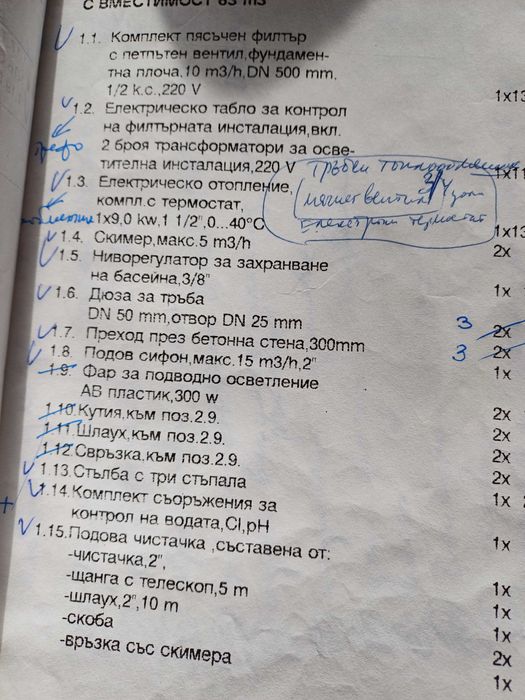 С ВМЕСТИМОСТ 63 m3
1.1. Комплект пясъчен филтър
с петпътен вентил,фундамен-
тна плоча,10 m3/h,DN 500 mm,
1/2 к.с.,220 V
1x13
1.2. Електрическо табло за контрол
на филтърната инсталация,вкл.
2 броя трансформатори за осве-
тителна инсталация,220 V
1x11
Тръбен топлообменник
магнет вентил 3/4 цола
Електрони термостат
1.3. Електрическо отопление,
компл.с термостат,
1x9,0 kw,1 1/2",0...40°C
1x13
1.4. Скимер,макс.5 m3/h
2x
1.5. Ниворегулатор за захранване
на басейна,3/8"
1x
1.6. Дюза за тръба
DN 50 mm,отвор DN 25 mm
3 2x
1.7. Преход през бетонна стена,300mm
3 2x
1.8. Подов сифон,макс.15 m3/h,2"
1x
1.9. Фар за подводно осветление
АВ пластик,300 w
2x
1.10.Кутия,към поз.2.9.
2x
1.11.Шлаух,към поз.2.9.
2x
1.12.Свръзка,към поз.2.9.
2x
1.13.Стълба с три стъпала
1x
+ 1.14.Комплект съоръжения за
контрол на водата,Cl,pH
1x
1.15.Подова чистачка ,съставена от:
-чистачка,2",
1x
-щанга с телескоп,5 m
1x
-шлаух,2",10 m
1x
-скоба
2x
-връзка със скимера
1x